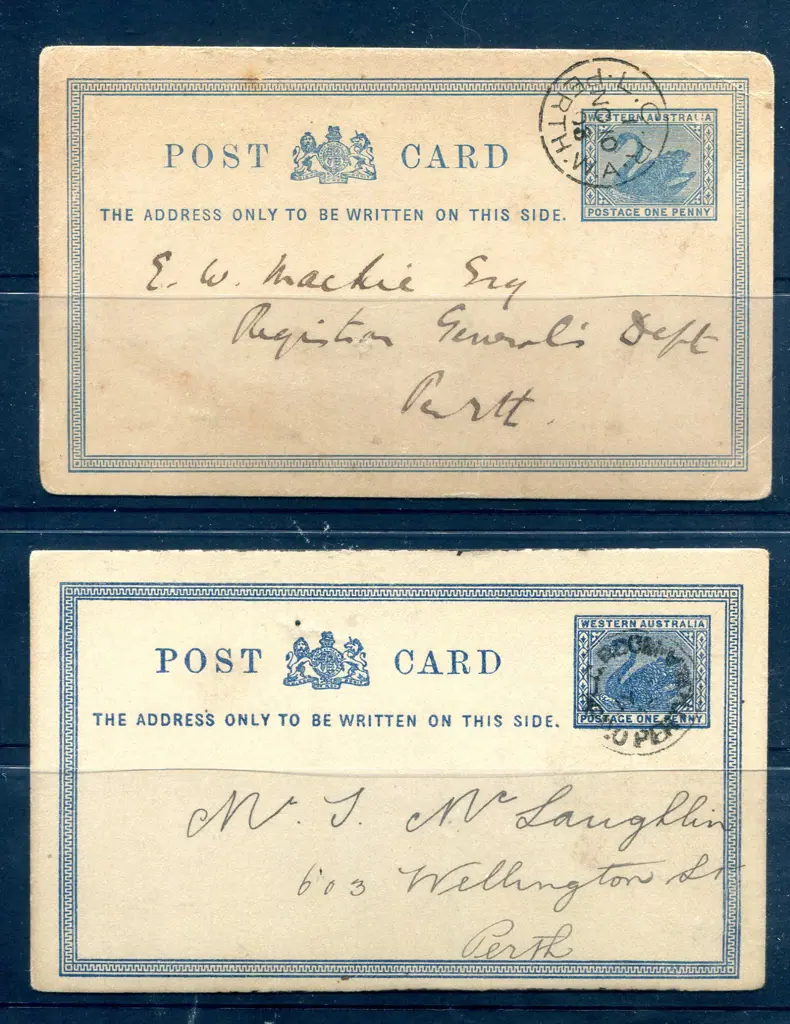 POST CARD
WESTERN AUSTRALIA
POSTAGE ONE PENNY
THE ADDRESS ONLY TO BE WRITTEN ON THIS SIDE.
PERTH
E. W. Mackie Esq
Registrar General's Dept
Perth.
POST CARD
WESTERN AUSTRALIA
POSTAGE ONE PENNY
THE ADDRESS ONLY TO BE WRITTEN ON THIS SIDE.
Mr. J. Mc Laughlin
603 Wellington St
Perth